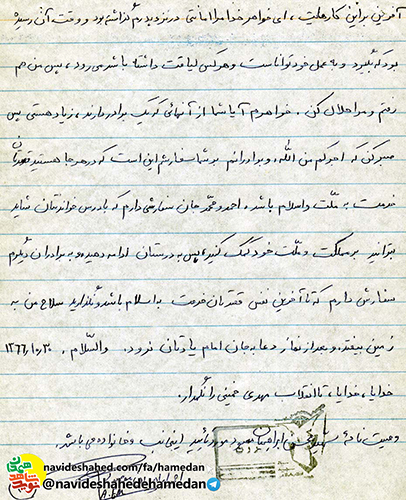 آفرین براین کار هلیت، ای خواهر خدا مرا امانتی در نزد پدرم گذاشته بود و وقت آن رسیده
بود که بگیرد و به عمل خود توانا است و هرکس لیاقت داشته باشد می رود، پس من هم
رفتم و مرا حلال کن. خواهرم آیا شما از آنهائی که یک برادر دارند، زیاد هستی پس
صبر کن که اجرکم من الله، و برادرانم بر شما سفارشم این است که در هر جا هستید قصدتان
خدمت به ملت و اسلام باشد. احمد و محمد جان سفارشی دارم که با درس خواندنتان شاید
بتوانید بر مملکت و ملت خود کمک کنید، پس به درستان ادامه دهید و به برادران دیگرم
سفارش دارم که تا آخرین نفس قصدتان خدمت به اسلام باشد و نگذارید سلاح من به
زمین بیفتد. و بعد از نماز دعا به جان امام یادتان نرود. والسّلام. ۱۳۶۶/۱۰/۳۰
خدایا، خدایا، تا انقلاب مهدی خمینی را نگهدار.
وصیت نامهٔ شهید ابراهیم مورد تأیید اینجانب و خانواده می باشد.
navideshahed.com/fa/hamedan
@navideshahedehamedan